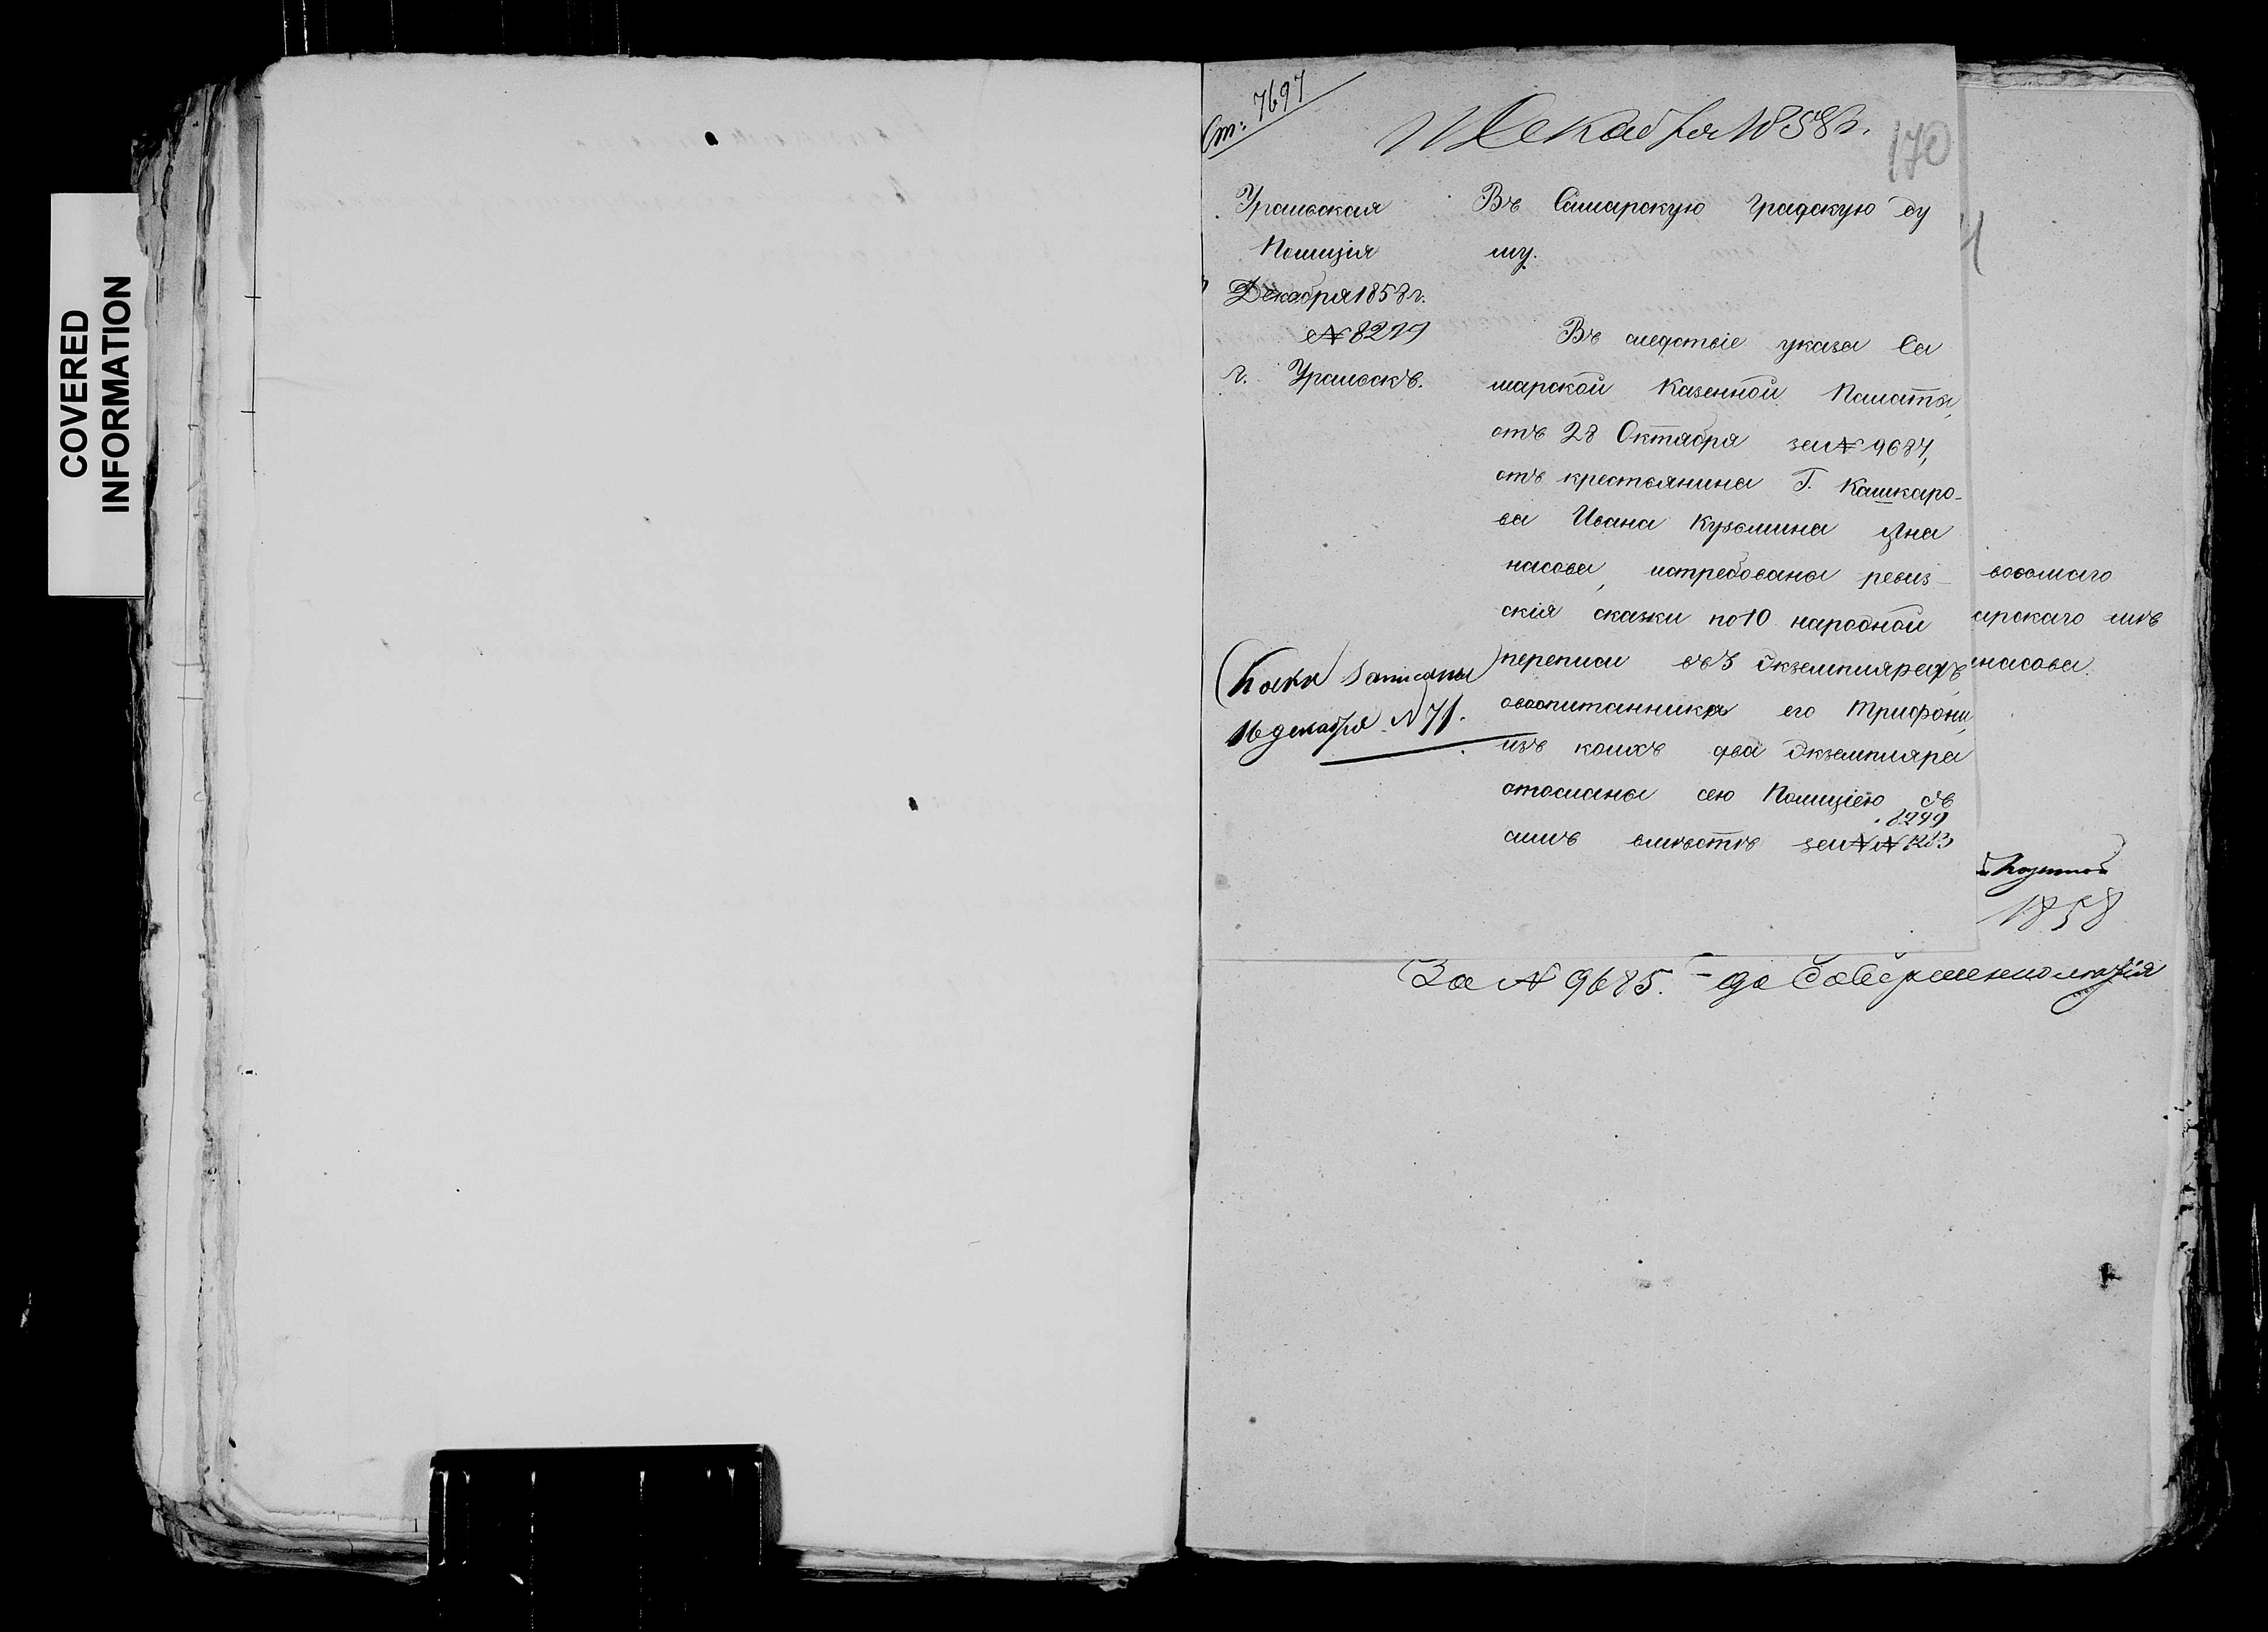 COVERED
INFORMATION
Ст: 7697
11 Декабря 1858 г.
170
Уральская
Полиція
Декабря 1858 г.
№ 8299
г. Уральскъ.
Въ Самарскую Градскую Ду
му.
Въ следствіе указа Са
марской Казенной Палаты,
отъ 28 Октября за № 9684,
отъ крестьянина Г. Кашкаро-
ва Ивана Кузьмина Ана
насова, истребованы ревиз
скія сказки по 10 народной
переписи въ 3 экземплярахъ
о воспитанника его Трифони,
изъ коихъ два экземпляра
отосланы сею Полиціею съ
симъ вместѣ за №№ 8299
1213
записаны
16 декабря № 71.
арскаго мѣ
насова.
Казенной
1858
За № 9685. - до совершеннолетія